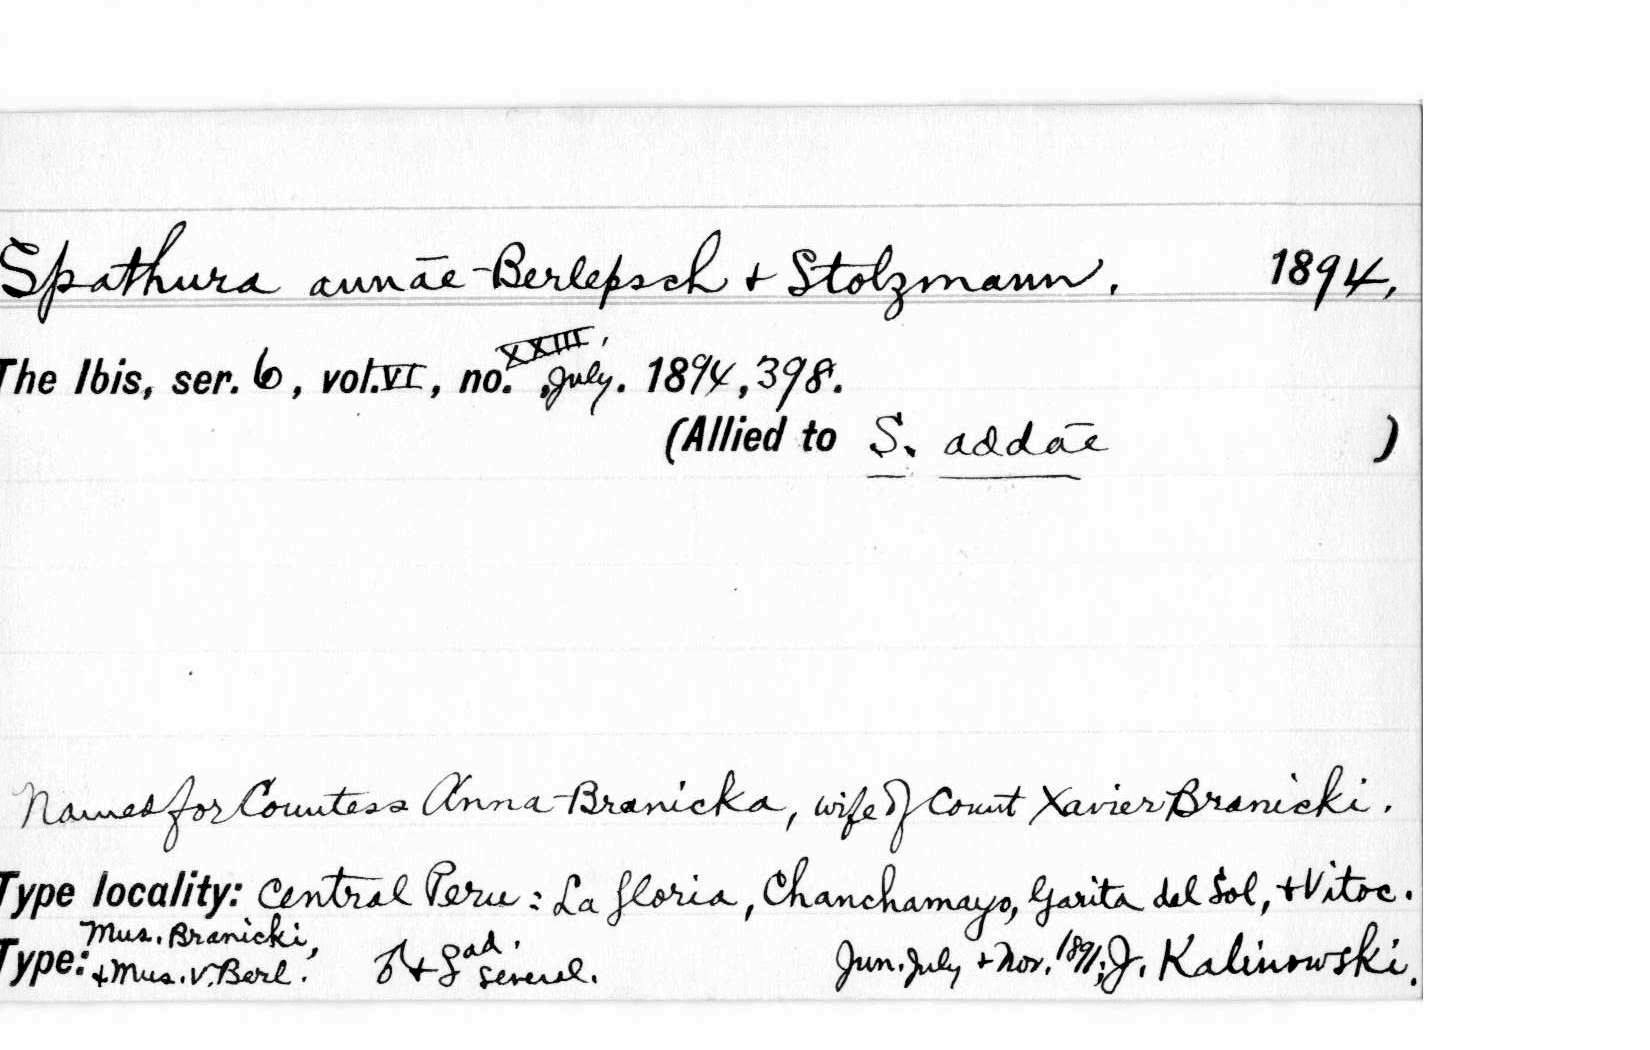 Spathura annae Berlepsch & Stolzmann. 1894.
The Ibis, ser. 6, vol. VI, no. XXIII, July. 1894, 398.
(Allied to S. addae )
Named for Countess Anna Branicka, wife of Count Xavier Branicki.
Type locality: Central Peru: La Gloria, Chanchamayo, Garita del Sol, + Vitoc.
Type: Mus. Branicki, + Mus. v. Berl. ♂ + ♀ ad. several. Jun. July + Nov. 1891; J. Kalinowski.